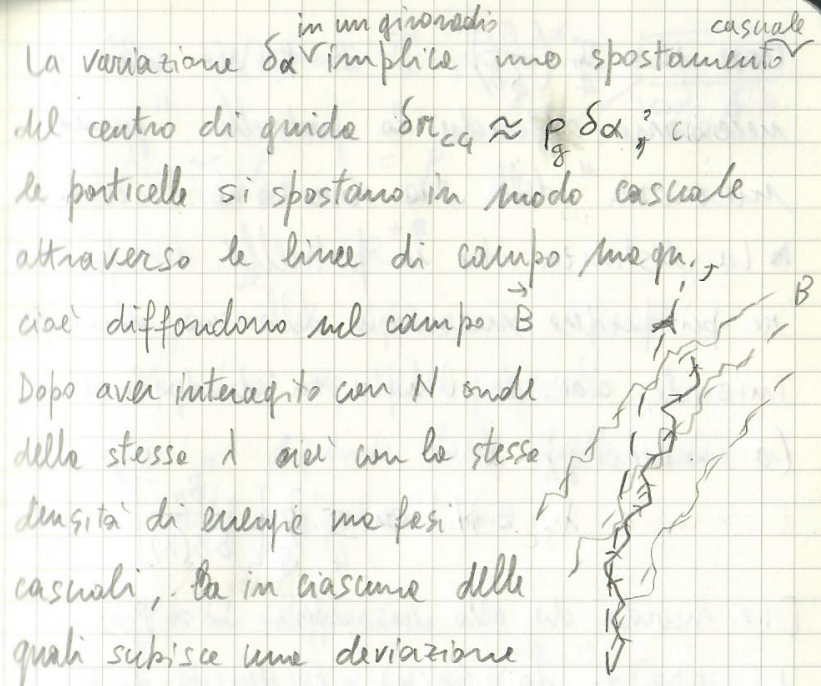 in un giroradio casuale
La variazione δα implica uno spostamento
del centro di guida δr_CG ≈ ρ_g δα ;
le particelle si spostano in modo casuale
attraverso le linee di campo magn.,
cioè diffondono nel campo B⃗
B
Dopo aver interagito con N onde
della stessa λ cioè con la stessa
densità di energia ma fasi
casuali, in ciascuna delle
quali subisce una deviazione